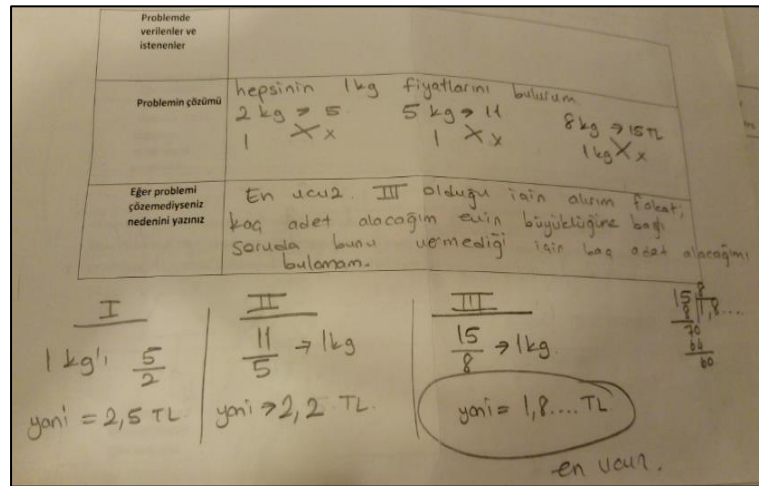 Problemde
verilenler ve
istenenler
Problemin çözümü
hepsinin 1kg fiyatlarını bulurum
2 kg → 5 5 kg → 11 8kg → 15 TL
1 x 1 x 1kg x
Eğer problemi
çözemediyseniz
nedenini yazınız
En ucuz III olduğu için alırım fakat,
kaç adet alacağım evin büyüklüğüne bağlı
soruda bunu vermediği için kaç adet alacağımı
bulamam.
I
1 kg'ı 5/2
yani = 2,5 TL
II
11/5 → 1kg
yani → 2,2 TL
III
15/8 → 1kg
yani = 1,8.... TL
en ucuz.
15 8
8 1,8....
70
64
60